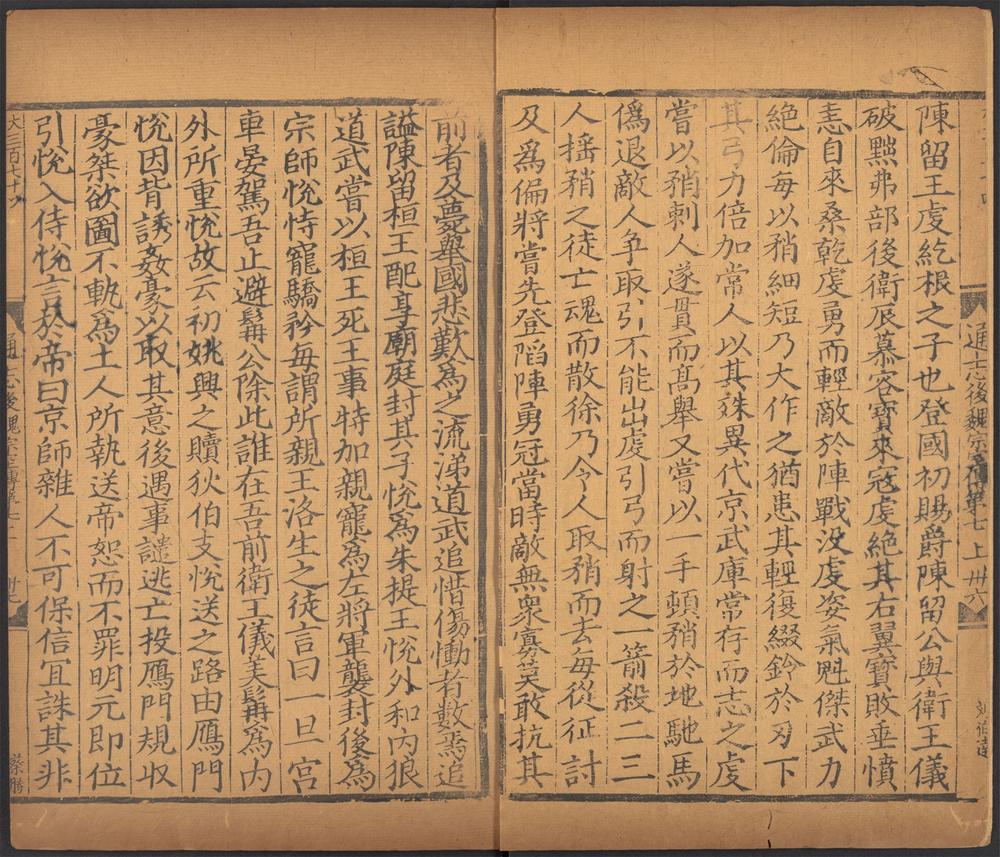 陳留王虔紇根之子也登國初賜爵陳留公與衛王儀
破黜弗部後衛辰慕容寶來寇虔絶其右翼寶敗垂憤
恚自來桑乾虔勇而輕敵於陣戰没虔姿氣魁傑武力
絶倫每以矟細短乃大作之猶患其輕復綴鈴於刃下
其弓力倍加常人以其殊異代京武庫常存而志之虔
嘗以矟刺人遂貫而高舉又嘗以一手頓矟於地馳馬
僞退敵人争取引不能出虔引弓而射之一箭殺二三
人摇矟之徒亡魂而散徐乃令人取矟而去每從征討
及爲偏將嘗先登䧟陣勇冠當時敵無衆寡莫敢抗其
通志後魏宗室傳第七上 卅六
前者及薨舉國悲歎爲之流涕道武追惜傷慟者數焉追
謚陳留桓王配享廟庭封其子悅爲朱提王悅外和内狼
道武嘗以桓王死王事特加親寵爲左將軍襲封後爲
宗師悅恃寵驕矜每謂所親王洛生之徒言曰一旦宫
車晏駕吾止避髯公除此誰在吾前衛王儀美髯爲内
外所重悅故云初姚興之贖狄伯支悅送之路由鴈門
悅因背誘姦豪以取其意後遇事譴逃亡投鴈門規收
豪桀欲圖不軌爲土人所執送帝恕而不罪明元即位
引悅入侍悅言於帝曰京師雜人不可保信宜誅其非
蔡勝